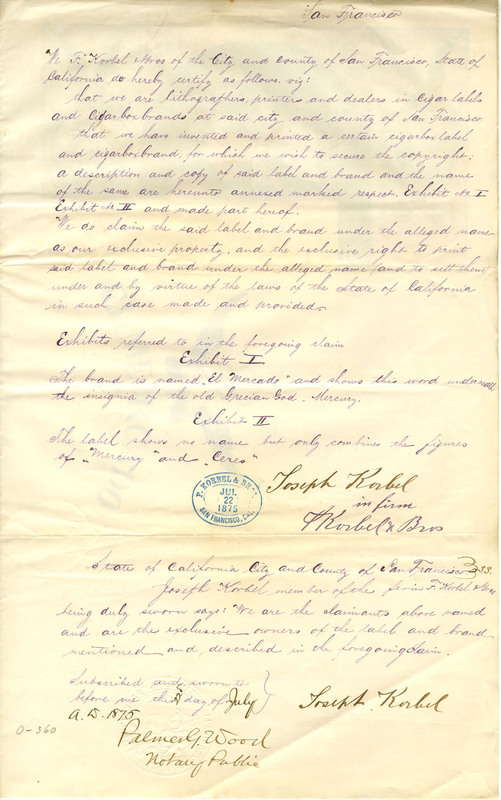 San Francisco
We F. Korbel & Bros of the City and County of San Francisco, State of
California do hereby certify as follows. viz:
that we are lithographers, printers and dealers in Cigar labels
and Cigarbox brands at said city and county of San Francisco.
that we have invented and printed a certain cigarbox label
and cigarbox brand, for which we wish to secure the copyright;
a description and copy of said label and brand and the name
of the same are hereunto annexed marked respect. Exhibit No I
Exhibit No II and made part hereof.
We do claim the said label and brand under the alleged name
as our exclusive property, and the exclusive right to print
said label and brand under the alleged name (and to sell them)
under and by virtue of the laws of the State of California
in such case made and provided.
Exhibits referred to in the foregoing claim
Exhibit I
The brand is named "El Mercado" and shows this word underneath
the insignia of the old Grecian God. Mercury.
Exhibit II
The label shows no name but only combines the figures
of "Mercury" and "Ceres"
F. KORBEL & BROS.
JUL
22
1875
SAN FRANCISCO, CAL.
Joseph Korbel
in firm
F Korbel & Bros
State of California City and County of San Francisco SS.
Joseph Korbel member of the firm F. Korbel & Bros
being duly sworn says: We are the claimants above named
and are the exclusive owners of the label and brand
mentioned and described in the foregoing claim.
Subscribed and sworn to
before me the day of July
A. D. 1875
Joseph Korbel
0-360
Palmer G. Wood
Notary Public